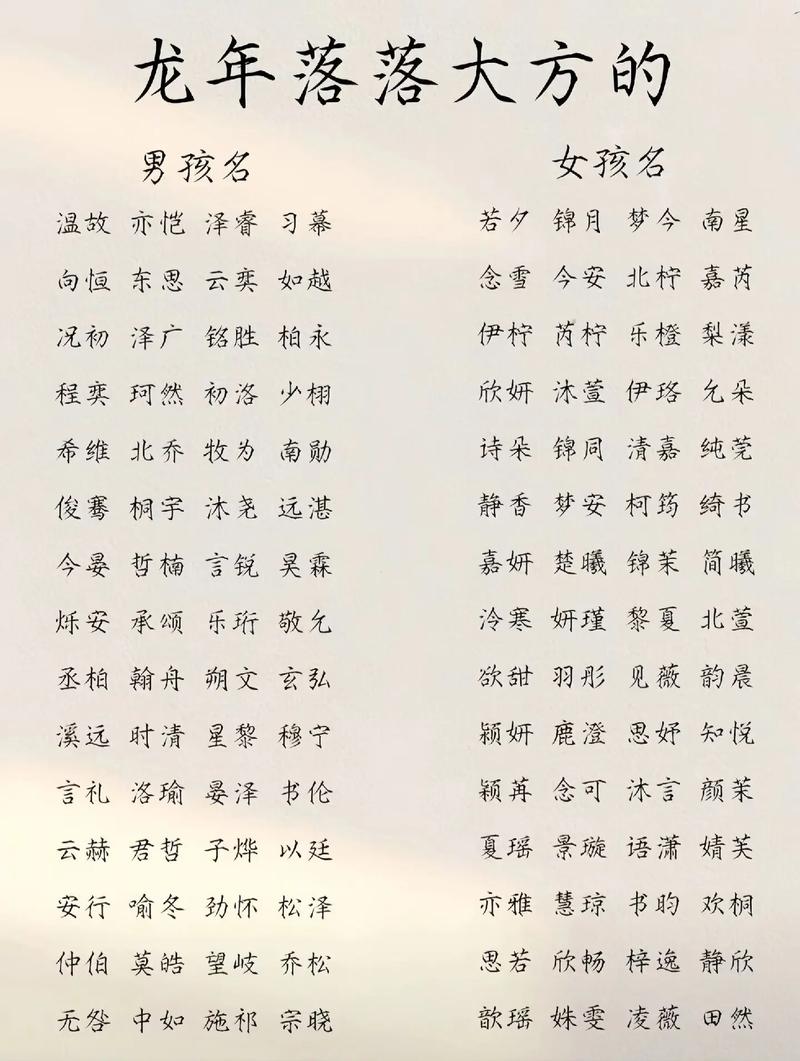 龙年落落大方的
男孩名
温故 亦恺 泽睿 习幕
向恒 东思 云奕 如越
况初 泽广 铭胜 柏永
程奕 珂然 初洛 少栩
希维 北乔 牧为 南勋
俊骞 桐宇 沐尧 远湛
今晏 哲楠 言锐 昊霖
烁安 承颂 乐珩 敬允
丞柏 翰舟 朔文 玄弘
溪远 时清 星黎 穆宁
言礼 洛瑜 晏泽 书伦
云赫 君哲 子烨 以廷
安行 喻冬 劲怀 松泽
仲伯 莫皓 望岐 乔松
无咎 中如 施祁 宗晓
女孩名
若夕 锦月 梦今 南星
念雪 今安 北柠 嘉芮
伊柠 芮柠 乐橙 梨漾
欣妍 沐萱 伊珞 允朵
诗朵 锦同 清嘉 纯莞
静香 梦安 柯筠 绮书
嘉妍 楚曦 锦茉 简曦
泠寒 妍瑾 黎夏 北萱
欲甜 羽彤 见薇 韵晨
颖妍 鹿澄 思妤 知悦
颖苒 念可 沐言 颜茉
夏瑶 景璇 语潇 婧芙
亦雅 慧琼 书昀 欢桐
思若 欣畅 梓逸 静欣
歆瑶 姝雯 凌薇 田然